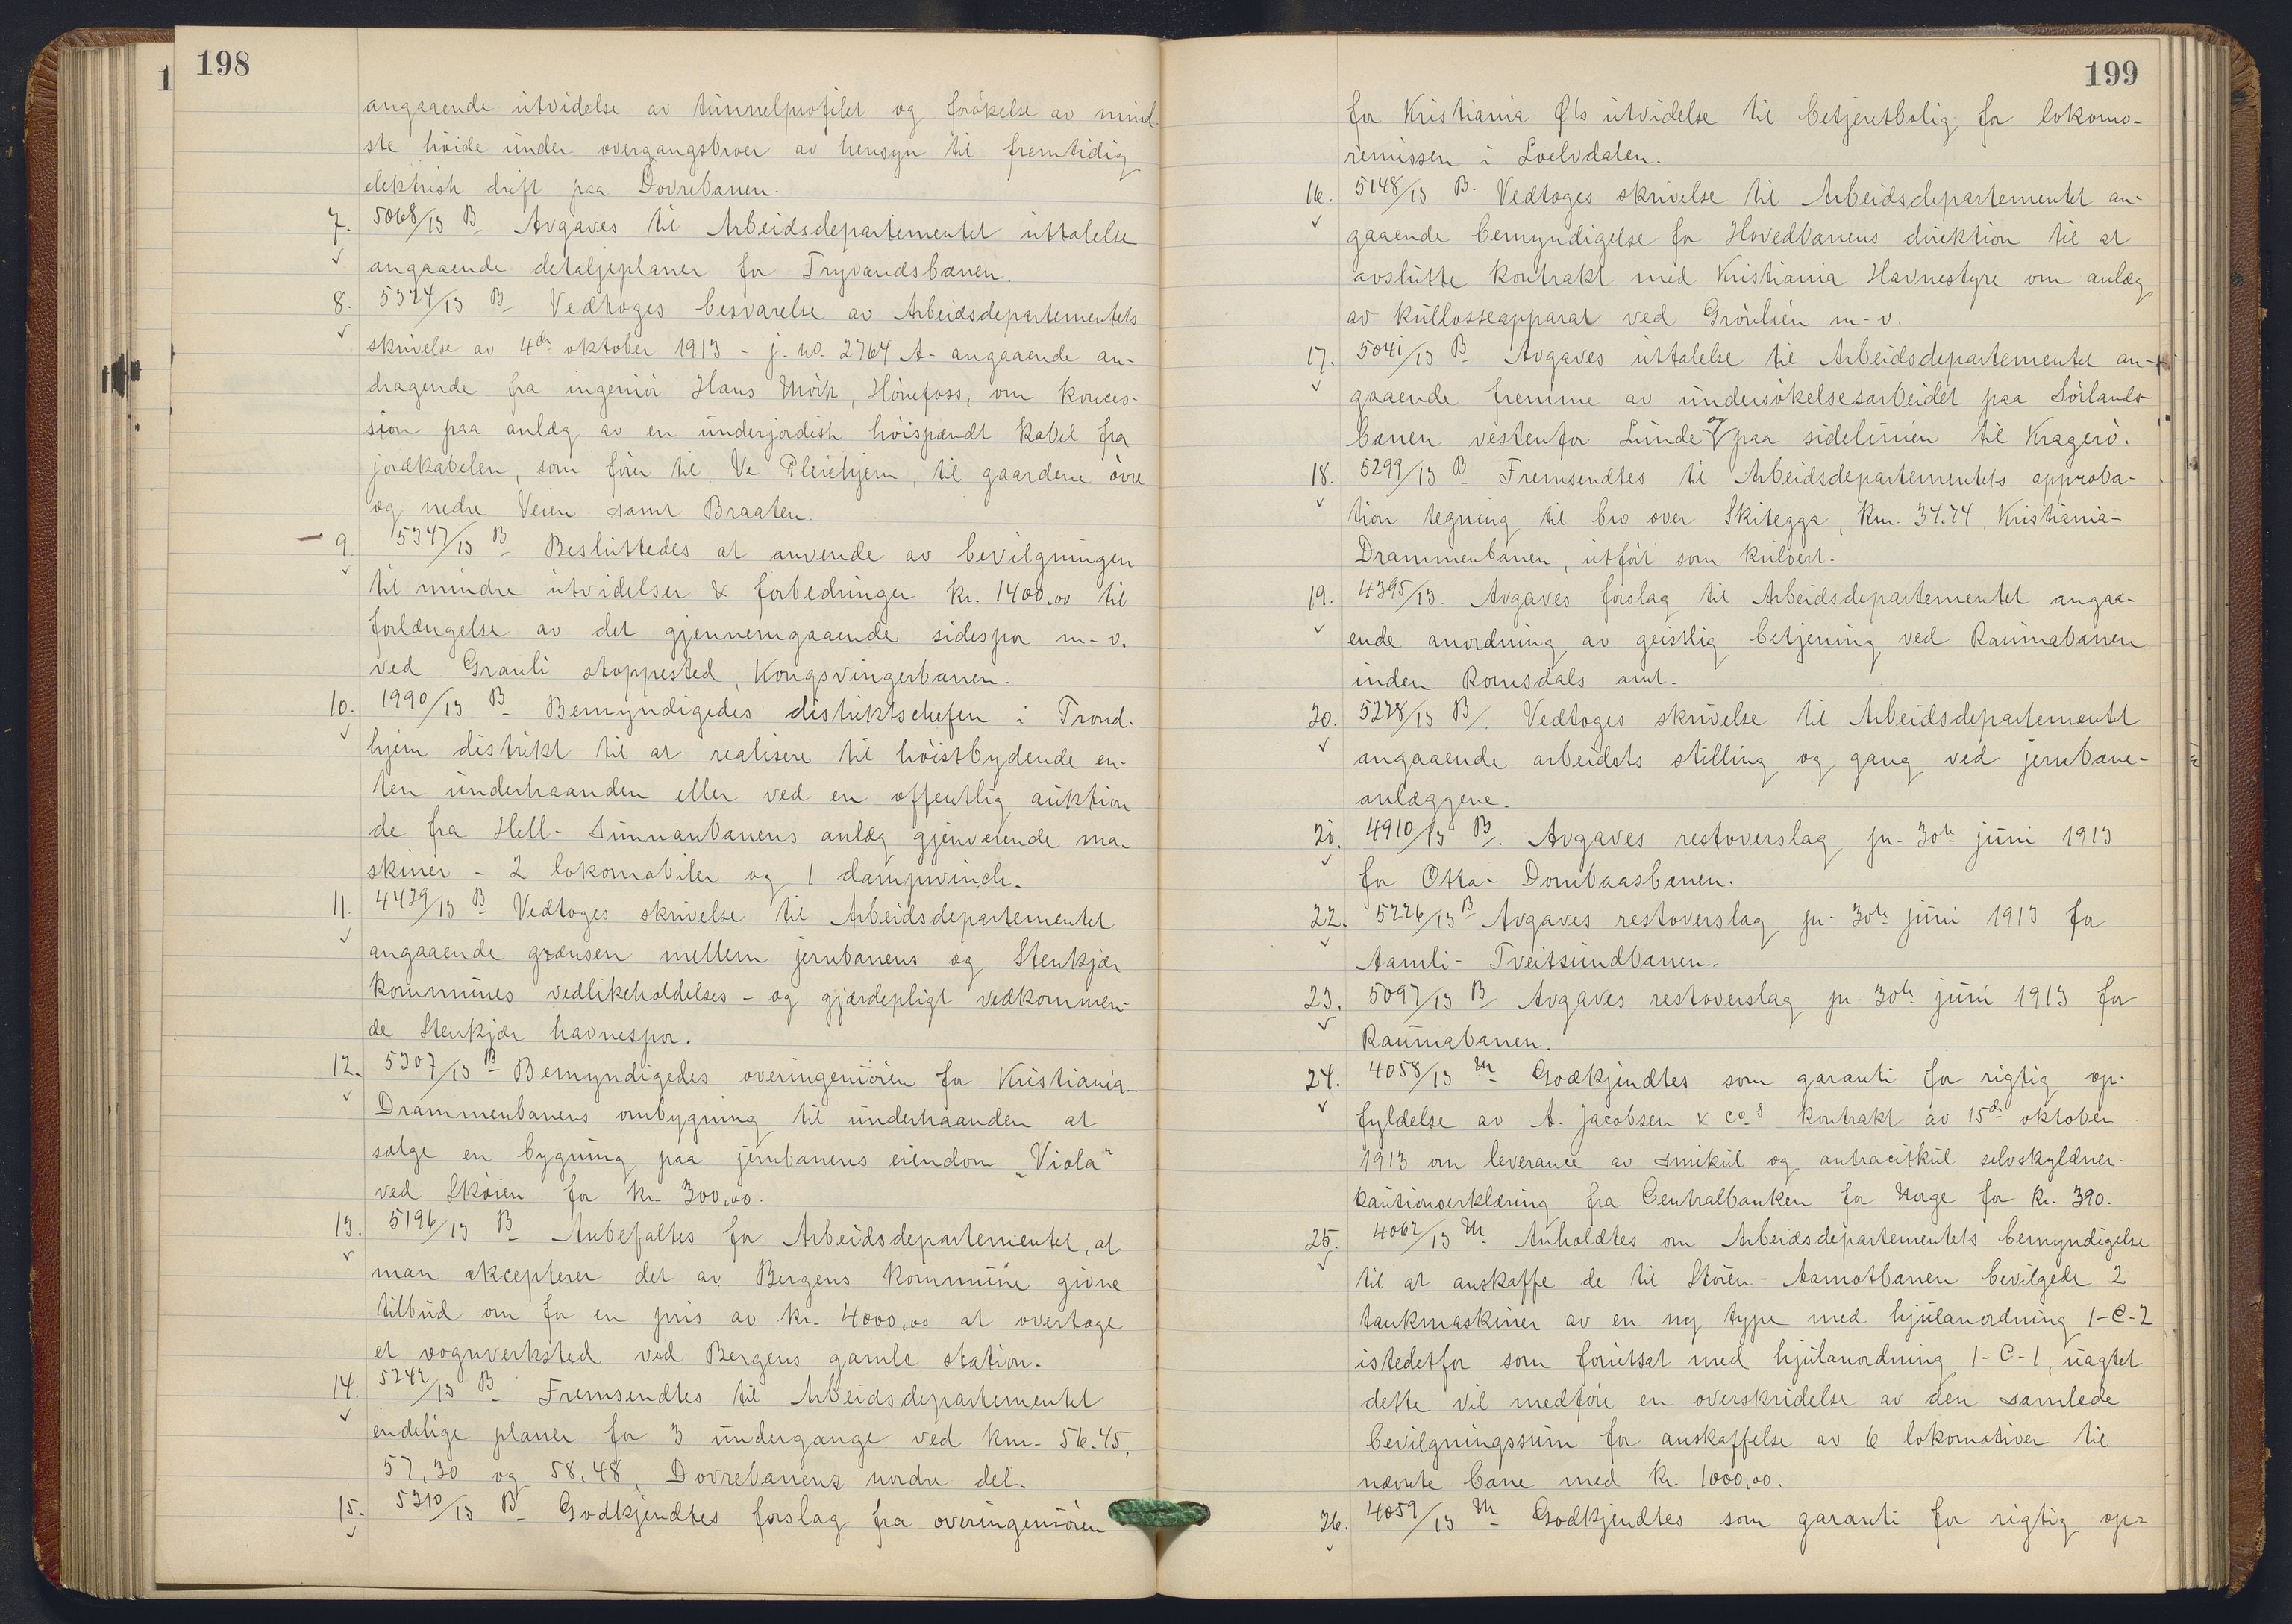 198
angaaende utvidelse av tunnelprofilet og forökelse av mind
ste höide under overgangsbroer av hensyn til fremtidig
elektrisk drift paa Dovrebanen.
7. 5068/13 B Avgaves til Arbeidsdepartementet uttalelse
angaaende detaljeplaner for Tryvandsbanen.
8. 5324/13 B Vedtoges besvarelse av Arbeidsdepartementets
skrivelse av 4de oktober 1913 - j. no. 2764 A - angaaende an-
dragende fra ingeniör Hans Mörk, Hönefoss, om konces-
sion paa anlæg av en underjordisk höispændt kabel fra
jordkabelen, som förer til Ve Pleiehjem, til gaardene övre
og nedre Veien samt Braaten.
9. 5347/13 B Besluttedes at anvende av bevilgningen
til mindre utvidelser & forbedringer kr. 1400,00 til
forlængelse av det gjennemgaaende sidespor m-v.
ved Granli stoppested, Kongsvingerbanen.
10. 1990/13 B Bemyndigedes distriktschefen i Trond-
hjem distrikt til at realisere til höistbydende en-
ten underhaanden eller ved en offentlig auktion
de fra Hell-Sunnanbanens anlæg gjenværende ma-
skiner - 2 lokomobiler og 1 dampwinch.
11. 4429/13 B Vedtoges skrivelse til Arbeidsdepartementet
angaaende grænsen mellem jernbanens og Stenkjær
kommunes vedlikeholdelses- og gjærdepligt vedkommen-
de Stenkjær havnespor.
12. 5307/13 B Bemyndigedes overingeniören for Kristiania-
Drammenbanens ombygning til underhaanden at
sælge en bygning paa jernbanens eiendom „Viola"
ved Sköien for kr 300,00.
13. 5196/13 B Anbefaltes for Arbeidsdepartementet, at
man akcepterer det av Bergens kommune givne
tilbud om for en pris av kr. 4000,00 at overtage
et vognverksted ved Bergens gamle station.
14. 5242/13 B Fremsendtes til Arbeidsdepartementet
endelige planer for 3 undergange ved km. 56.45,
57,30 og 58,48, Dovrebanens nordre del.
15. 5310/13 B Godkjendtes forslag fra overingeniören
199
for Kristiania Øts utvidelse til betjeretbolig for lokomo-
remissen i Loelvdalen.
16. 5148/13 B. Vedtoges skrivelse til Arbeidsdepartementet an-
gaaende bemyndigelse for Hovedbanens direktion til at
avslutte kontrakt med Kristiania Havnestyre om anlæg
av kullosseapparat ved Grönlien m-v.
17. 5041/13 B Avgaves uttalelse til Arbeidsdepartementet an-
gaaende fremme av undersökelsesarbeidet paa Sörlands-
banen vestenfor Lunde og paa sidelinien til Kragerö.
18. 5299/13 B Fremsendtes til Arbeidsdepartementets approba-
tion tegning til bro over Skitegga, km. 34.74, Kristiania-
Drammenbanen, utfört som kulvert.
19. 4395/13. Avgaves forslag til Arbeidsdepartementet angaa-
ende anordning av geistlig betjening ved Raumabanen
inden Romsdals amt.
20. 5228/13 B. Vedtoges skrivelse til Arbeidsdepartementet
angaaende arbeidets stilling og gang ved jernbane-
anlæggene.
21. 4910/13 B. Avgaves restoverslag pr. 30te juni 1913
for Otta-Dombaasbanen.
22. 5226/13 B Avgaves restoverslag pr. 30te juni 1913 for
Aamli-Tveitsundbanen.
23. 5097/13 B Avgaves restoverslag pr. 30te juni 1913 for
Raumabanen.
24. 4058/13 M Godkjendtes som garanti for rigtig op-
fyldelse av A. Jacobsen & Co.s kontrakt av 15de oktober
1913 om leverance av smikul og antracitkul selvskyldner-
kautionserklæring fra Centralbanken for Norge for kr. 390.
25. 4062/13 M Anholdtes om Arbeidsdepartementets bemyndigelse
til at anskaffe de til Stören-Aamotbanen bevilgede 2
tankmaskiner av en ny type med hjulanordning 1-C-2
istedetfor som forutsat med hjulanordning 1-C-1, uagtet
dette vil medföre en overskridelse av den samlede
bevilgningssum for anskaffelse av 6 lokomotiver til
nævnte bane med kr. 1000,00.
26. 4059/13 M Godkjendtes som garanti for rigtig op-